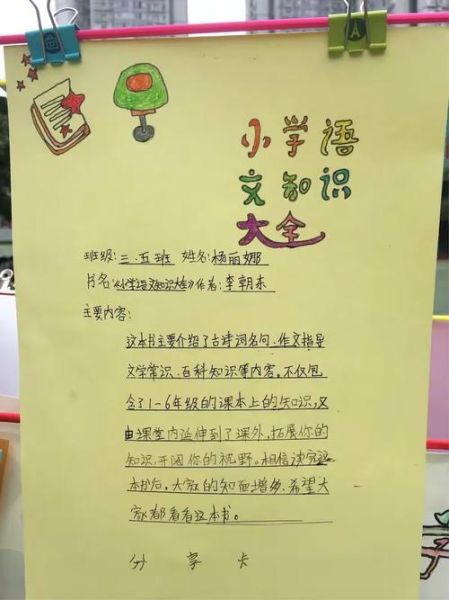 小学语
文知识
大全
班级:三.五班 姓名:杨丽娜
书名:《小学语文知识大全》作者:李朝东
主要内容:
这本书主要介绍了古诗词名句、作文指导
文学常识、百科知识等内容。不仅包
含了1-6年级的课本上的知识,又
由课堂内延伸到了课外,拓展你的
知识,开阔你的视野。相信读完这
本书后,大家的知面增多,希望大
家都看看这本书。
分 享 卡